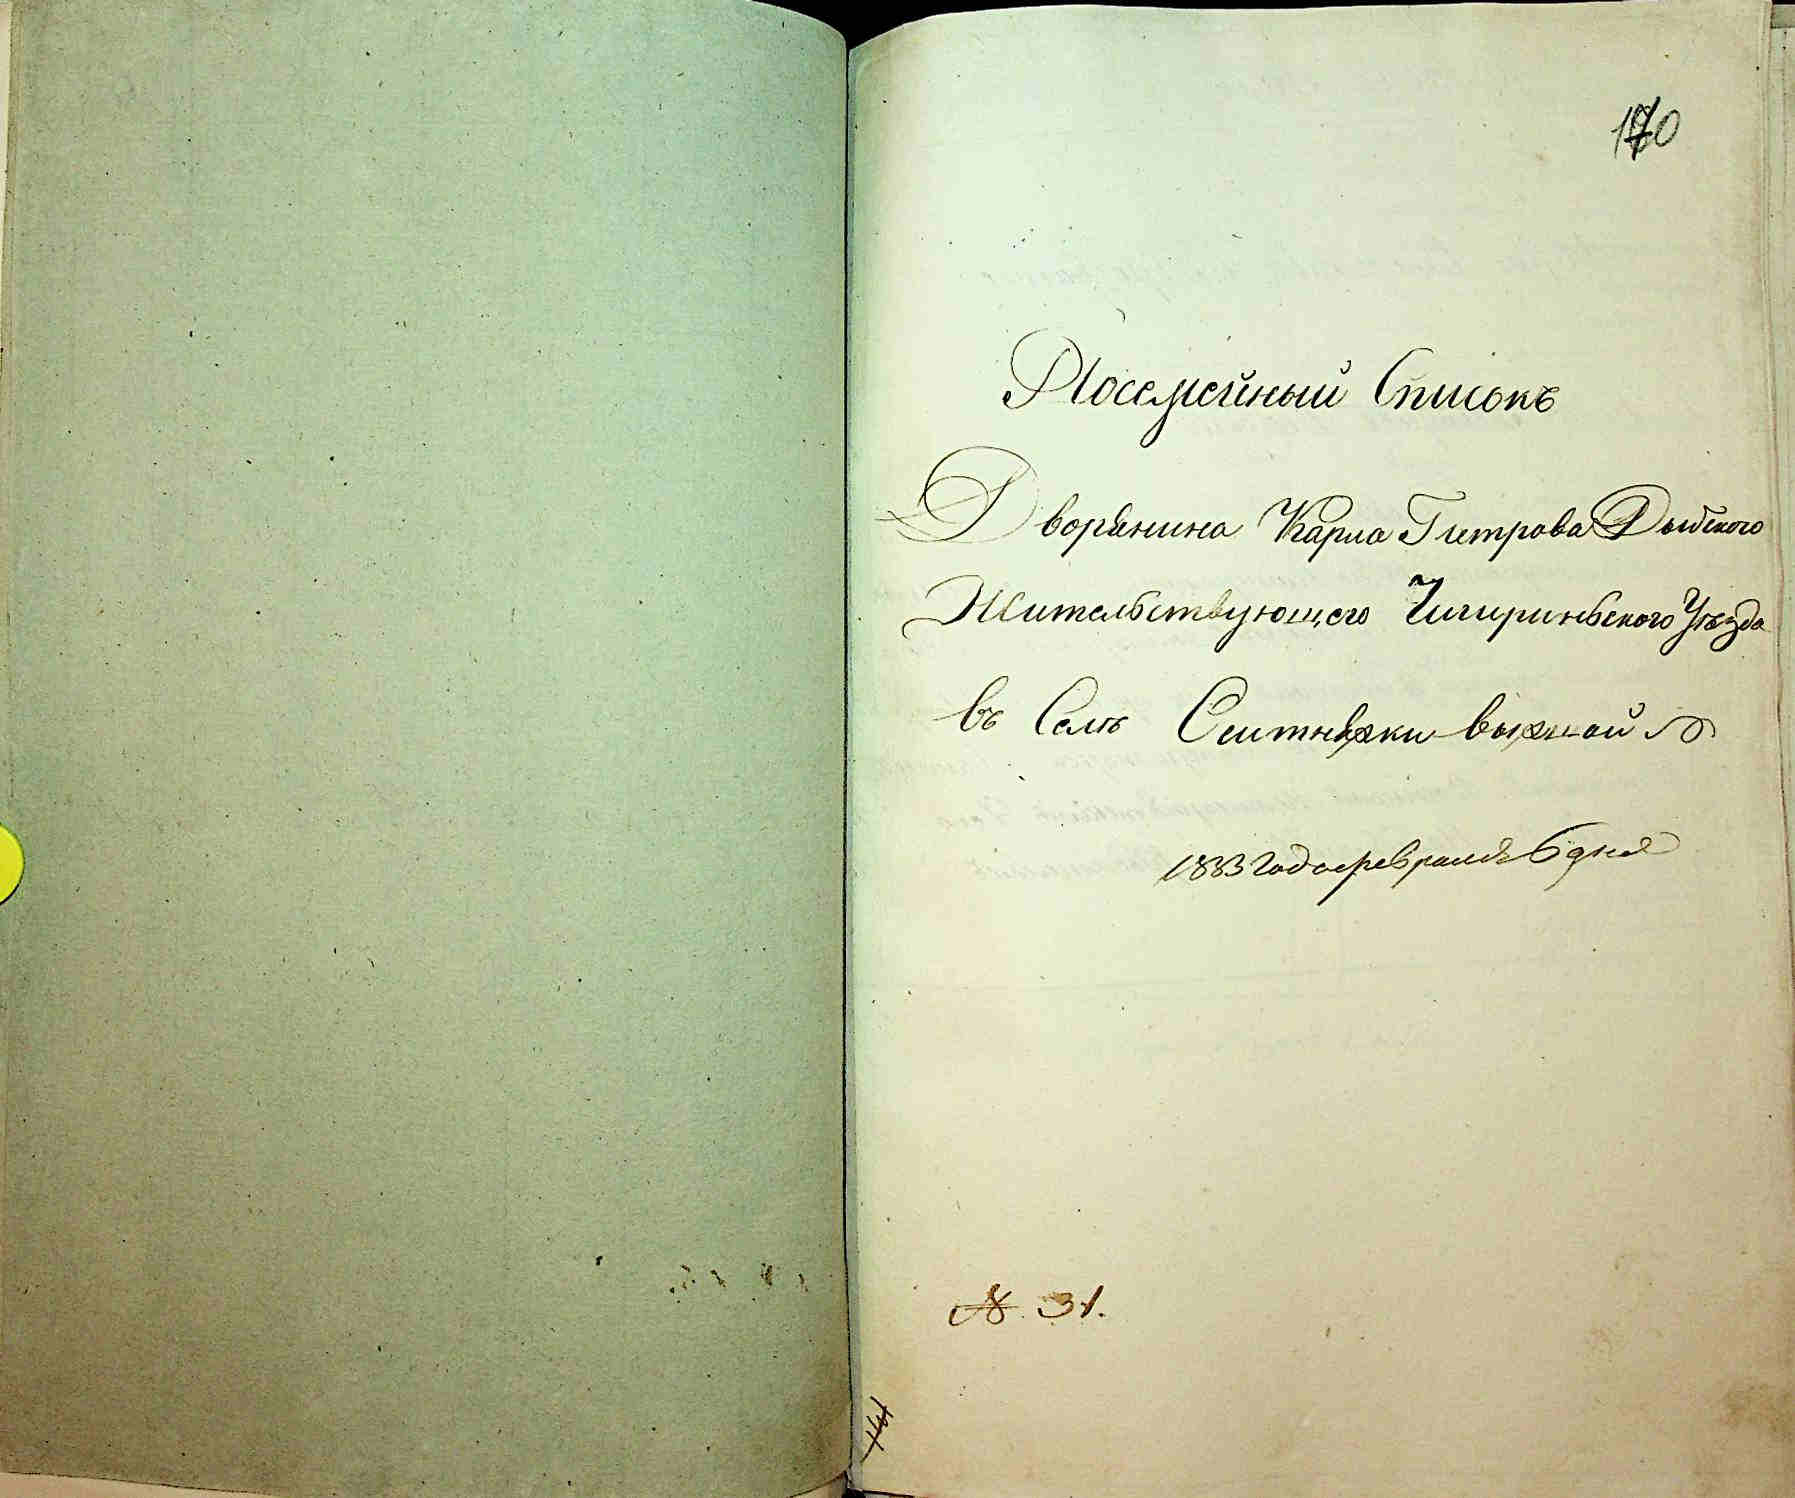 170
Посемейный Списокъ
Дворянина Карла Петрова
Жительствующего Чигириньского Уѣзда
въ Селѣ Сеитнѣжки
1883 года февраля 6 дня
№ 31.